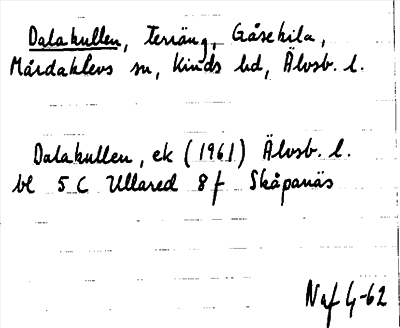 Dalakullen, terräng, Gåsekila,
Mårdaklevs sn, Kinds hd, Älvsb. l.
Dalakullen, ek (1961) Älvsb. l.
bl 5 C Ullared 8 f Skåpanäs
Naf 4-62